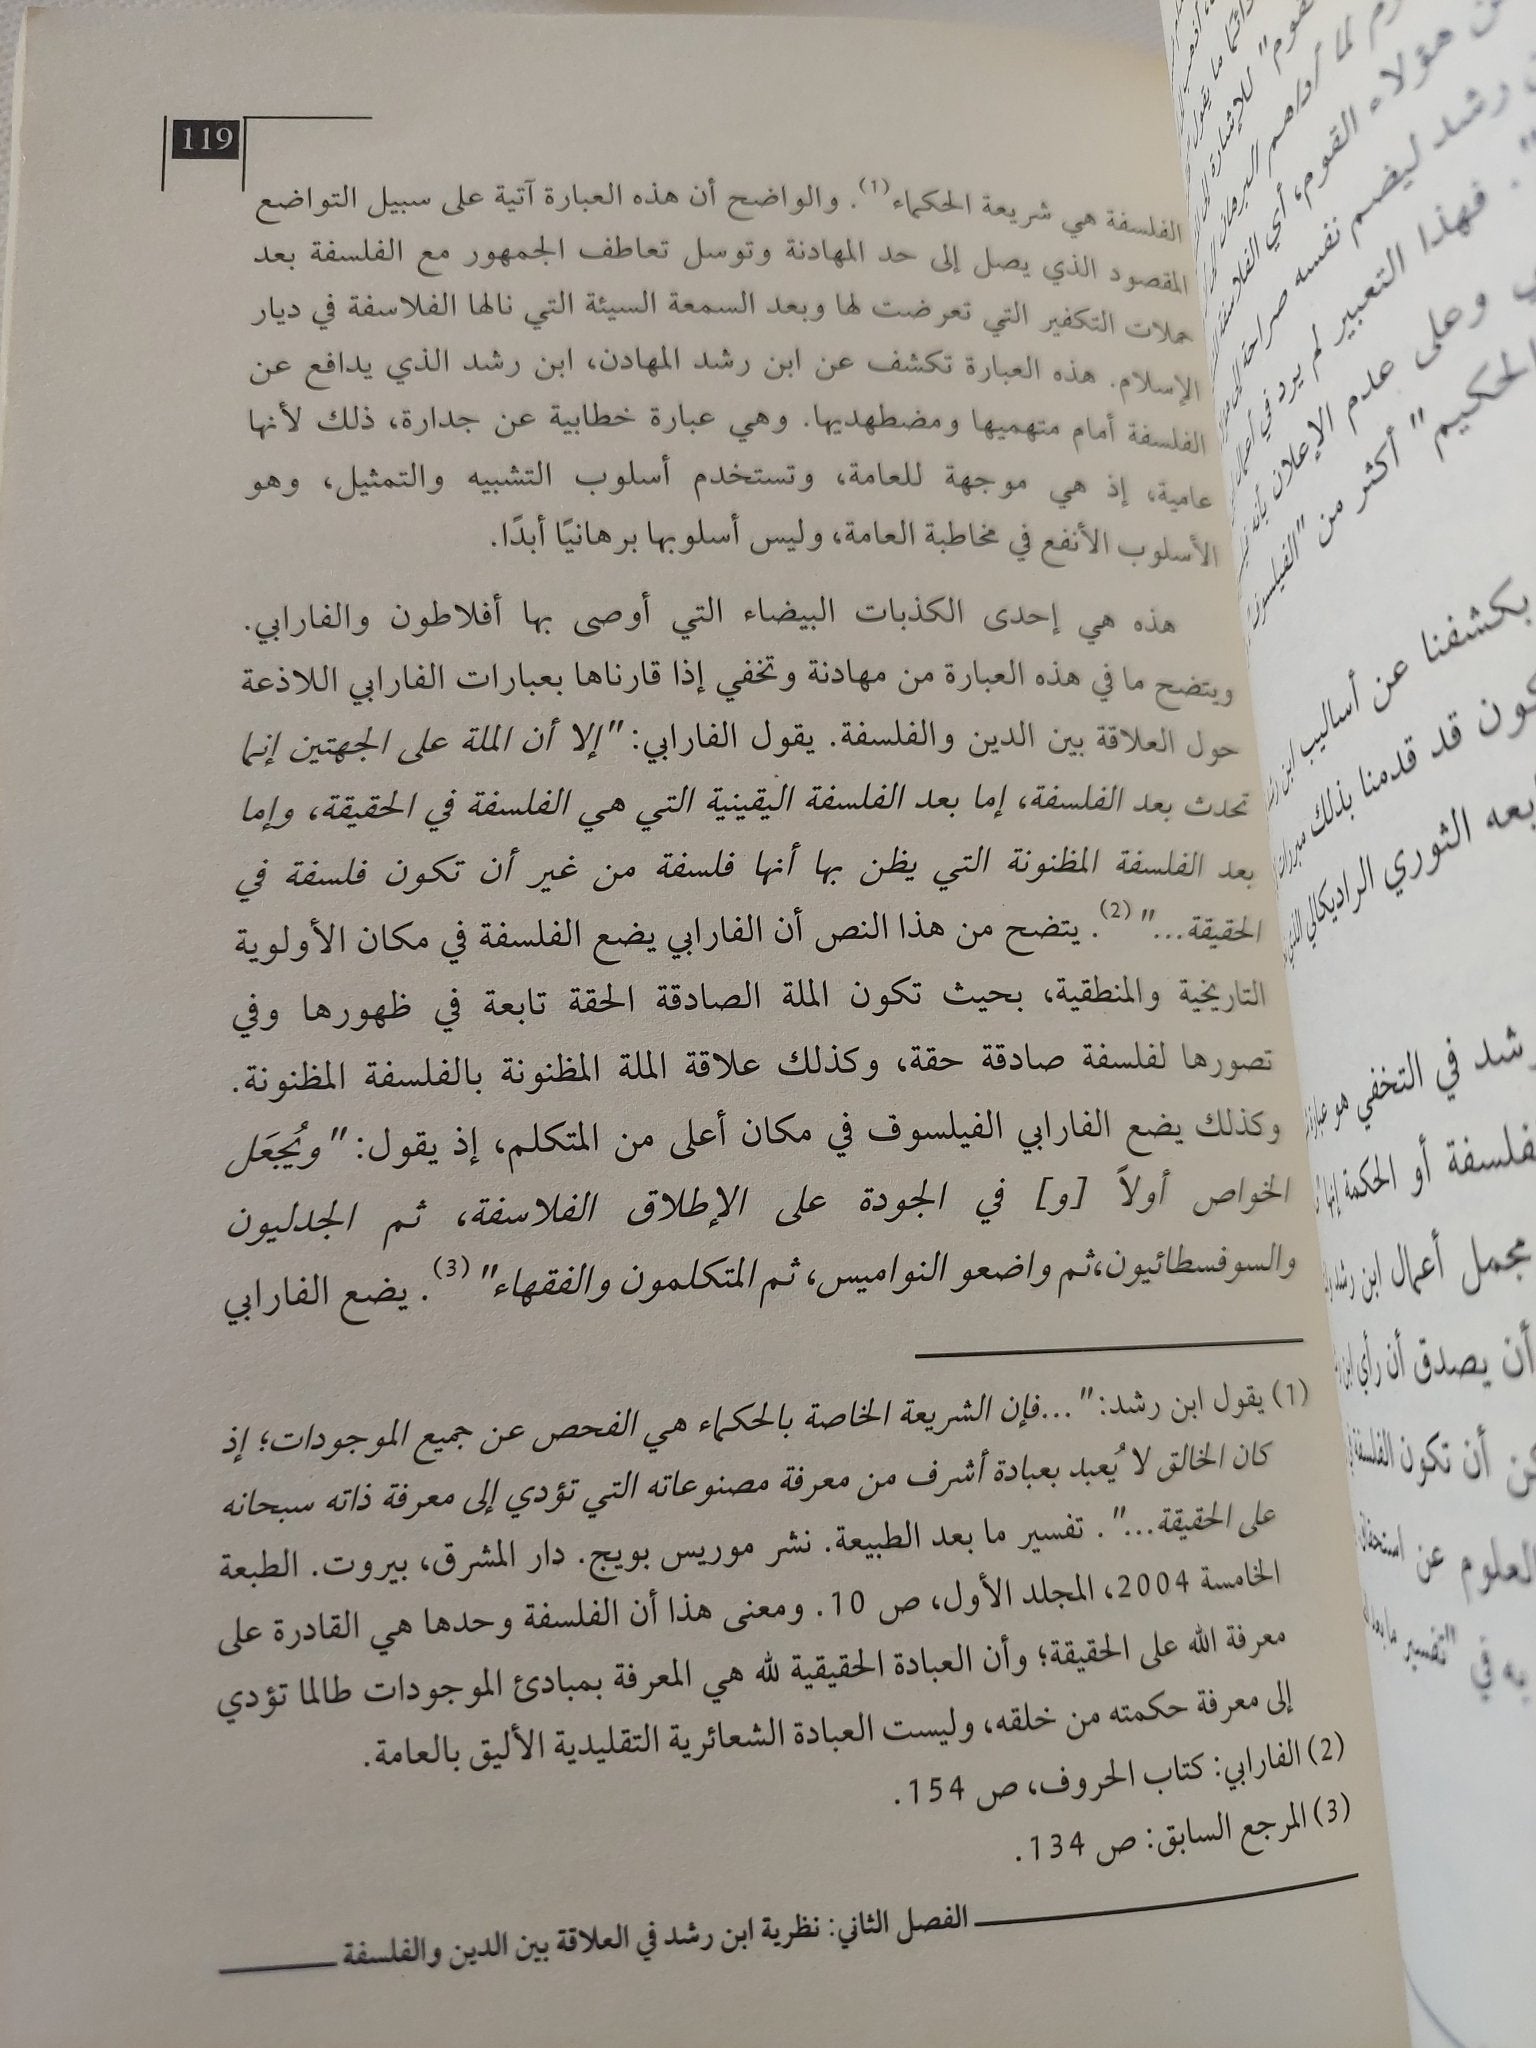 119
الفلسفة هي شريعة الحكماء(1). والواضح أن هذه العبارة آتية على سبيل التواضع
المقصود الذي يصل إلى حد المهادنة وتوسل تعاطف الجمهور مع الفلسفة بعد
حملات التكفير التي تعرضت لها وبعد السمعة السيئة التي نالها الفلاسفة في ديار
الإسلام. هذه العبارة تكشف عن ابن رشد المهادن، ابن رشد الذي يدافع عن
الفلسفة أمام متهميها ومضطهديها. وهي عبارة خطابية عن جدارة، ذلك لأنها
عامية، إذ هي موجهة للعامة، وتستخدم أسلوب التشبيه والتمثيل، وهو
الأسلوب الأنفع في مخاطبة العامة، وليس أسلوبها برهانيًا أبدًا.
هذه هي إحدى الكذبات البيضاء التي أوصى بها أفلاطون والفارابي.
ويتضح ما في هذه العبارة من مهادنة وتخفي إذا قارناها بعبارات الفارابي اللاذعة
حول العلاقة بين الدين والفلسفة. يقول الفارابي: "إلا أن الملة على الجهتين إنما
تحدث بعد الفلسفة، إما بعد الفلسفة اليقينية التي هي الفلسفة في الحقيقة، وإما
بعد الفلسفة المظنونة التي يظن بها أنها فلسفة من غير أن تكون فلسفة في
الحقيقة..."(2). يتضح من هذا النص أن الفارابي يضع الفلسفة في مكان الأولوية
التاريخية والمنطقية، بحيث تكون الملة الصادقة الحقة تابعة في ظهورها وفي
تصورها لفلسفة صادقة حقة، وكذلك علاقة الملة المظنونة بالفلسفة المظنونة.
وكذلك يضع الفارابي الفيلسوف في مكان أعلى من المتكلم، إذ يقول: "ويُجعَل
الخواص أولاً [و] في الجودة على الإطلاق الفلاسفة، ثم الجدليون
والسوفسطائيون،ثم واضعو النواميس، ثم المتكلمون والفقهاء"(3). يضع الفارابي
(1) يقول ابن رشد: "...فإن الشريعة الخاصة بالحكماء هي الفحص عن جميع الموجودات؛ إذ
كان الخالق لا يُعبد بعبادة أشرف من معرفة مصنوعاته التي تؤدي إلى معرفة ذاته سبحانه
على الحقيقة...". تفسير ما بعد الطبيعة. نشر موريس بويج. دار المشرق، بيروت. الطبعة
الخامسة 2004، المجلد الأول، ص 10. ومعنى هذا أن الفلسفة وحدها هي القادرة على
معرفة الله على الحقيقة؛ وأن العبادة الحقيقية لله هي المعرفة بمبادئ الموجودات طالما تؤدي
إلى معرفة حكمته من خلقه، وليست العبادة الشعائرية التقليدية الأليق بالعامة.
(2) الفارابي: كتاب الحروف، ص 154.
(3) المرجع السابق: ص 134.
الفصل الثاني: نظرية ابن رشد في العلاقة بين الدين والفلسفة
هؤلاء القوم، أي
رشد ليضم نفسه صراحة
فهذا التعبير لم يرد في
وعلى عدم الإعلان بأنه
الحكيم" أكثر من "الفيلسوف"
بكشفنا عن أساليب ابن
قد قدمنا بذلك
الثوري الراديكالي
رشد في التخفي هو
أو الحكمة إنها
مجمل أعمال ابن رشد
أن يصدق أن رأي ابن
أن تكون الفلسفة
العلوم عن
في "تفسير ما بعد